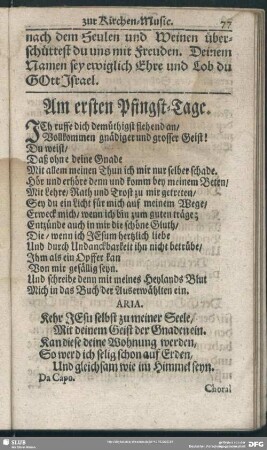 zur Kirchen-Music. 77
nach dem Heulen und Weinen über-
schüttest du uns mit Freuden. Deinem
Namen sey ewiglich Ehre und Lob du
GOtt Israel.
Am ersten Pfingst-Tage.
ICh ruffe dich demüthigst flehend an/
Vollkommen gnädiger und grosser Geist!
Du weist/
Daß ohne deine Gnade
Mit allem meinen Thun ich mir nur selber schade.
Hör und erhöre denn und komm bey meinem Beten/
Mit Lehre/ Rath und Trost zu mir getreten/
Sey du ein Licht für mich auf meinem Wege/
Erweck mich/ wenn ich bin zum guten träge;
Entzünde auch in mir die schöne Gluth/
Die/ wenn ich JEsum hertzlich liebe
Und durch Undanckbarkeit ihn nicht betrübe/
Ihm als ein Opffer kan
Von mir gefällig seyn.
Und schreibe denn mit meines Heylands Blut
Mich in das Buch der Auserwählten ein.
ARIA.
Kehr JEsu selbst zu meiner Seele/
Mit deinem Geist der Gnaden ein.
Kan diese deine Wohnung werden,
So werd ich selig schon auf Erden,
Und gleichsam wie im Himmel seyn.
Da Capo.
Choral